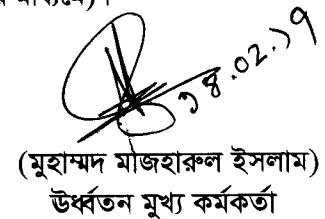 ১৪.০২.১৭
(মুহাম্মদ মাজহারুল ইসলাম)
ঊর্ধ্বতন মুখ্য কর্মকর্তা